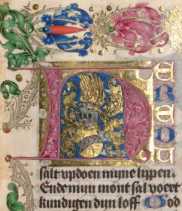 HERE
DU
salt updoen myne lippen.
Ende mijn mont sal voert
kundigen dijn loff God